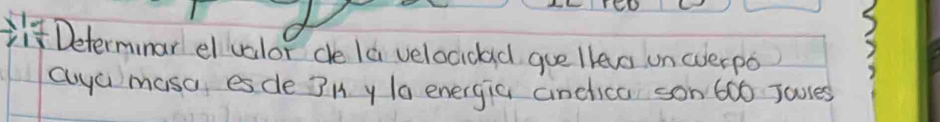 Determinar el valor de la velocidad que lleva un cuerpo
cuya masa es de 3K y la energia cinetica son 600 Joules